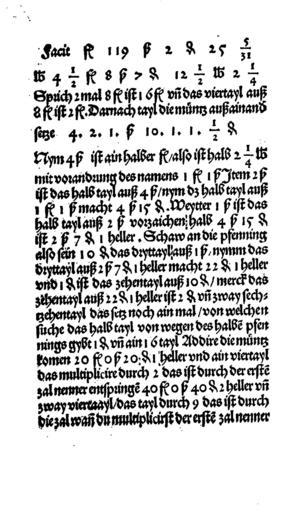 Facit fl 119 ß 2 ₰ 25 5/31
℔ 4 1/2 fl 8 ß 7 ₰ 12 1/2 ℔ 2 1/4
Sprich 2 mal 8 fl ist 16 fl vñ das viertayl auß
8 fl ist 2 fl. Darnach tayl die müntz außainand
setze 4. 2. 1. ß 10. 1. 1. 1/2 ₰
Nym 4 ß ist ain halber fl/also ist halb 2 1/4 ℔
mit vorandrung des namens 1 fl 1 ß Item 2 ß
ist das halb tayl auß 4 ß/nym dz halb tayl auß
1 fl 1 ß macht 4 ß 15 ₰. Weytter 1 ß ist das
halb tayl auß 2 ß vorzaichen halb 4 ß 15 ₰
ist 2 ß 7 ₰ 1 heller. Schaw an die pfenning
also sein 10 ₰ das dryttayl auß 1 ß, nymm das
dryttayl auß 2 ß 7 ₰ 1 heller macht 22 ₰ 1 heller
vnd 1 ₰ ist das zehentayl auß 10 ₰/merck das
zehentayl auß 22 ₰ 1 heller ist 2 ₰ vñ zway sech-
tzehentayl das setz noch ain mal/von welchen
suche das halb tayl von wegen des halbē pfen
nings gybt 1 ₰ vñ ain 16 tayl Addire die müntz
komen 20 fl 0 ß 20 ₰ 1 heller vnd ain viertayl
das multiplicire durch 2 das ist durch der erstē
zal nenner entspringē 40 fl 0 ß 40 ₰ 2 heller vñ
zway viertaayl/das tayl durch 9 das ist durch
die zal wañ du multiplicirst der erstē zal nenner